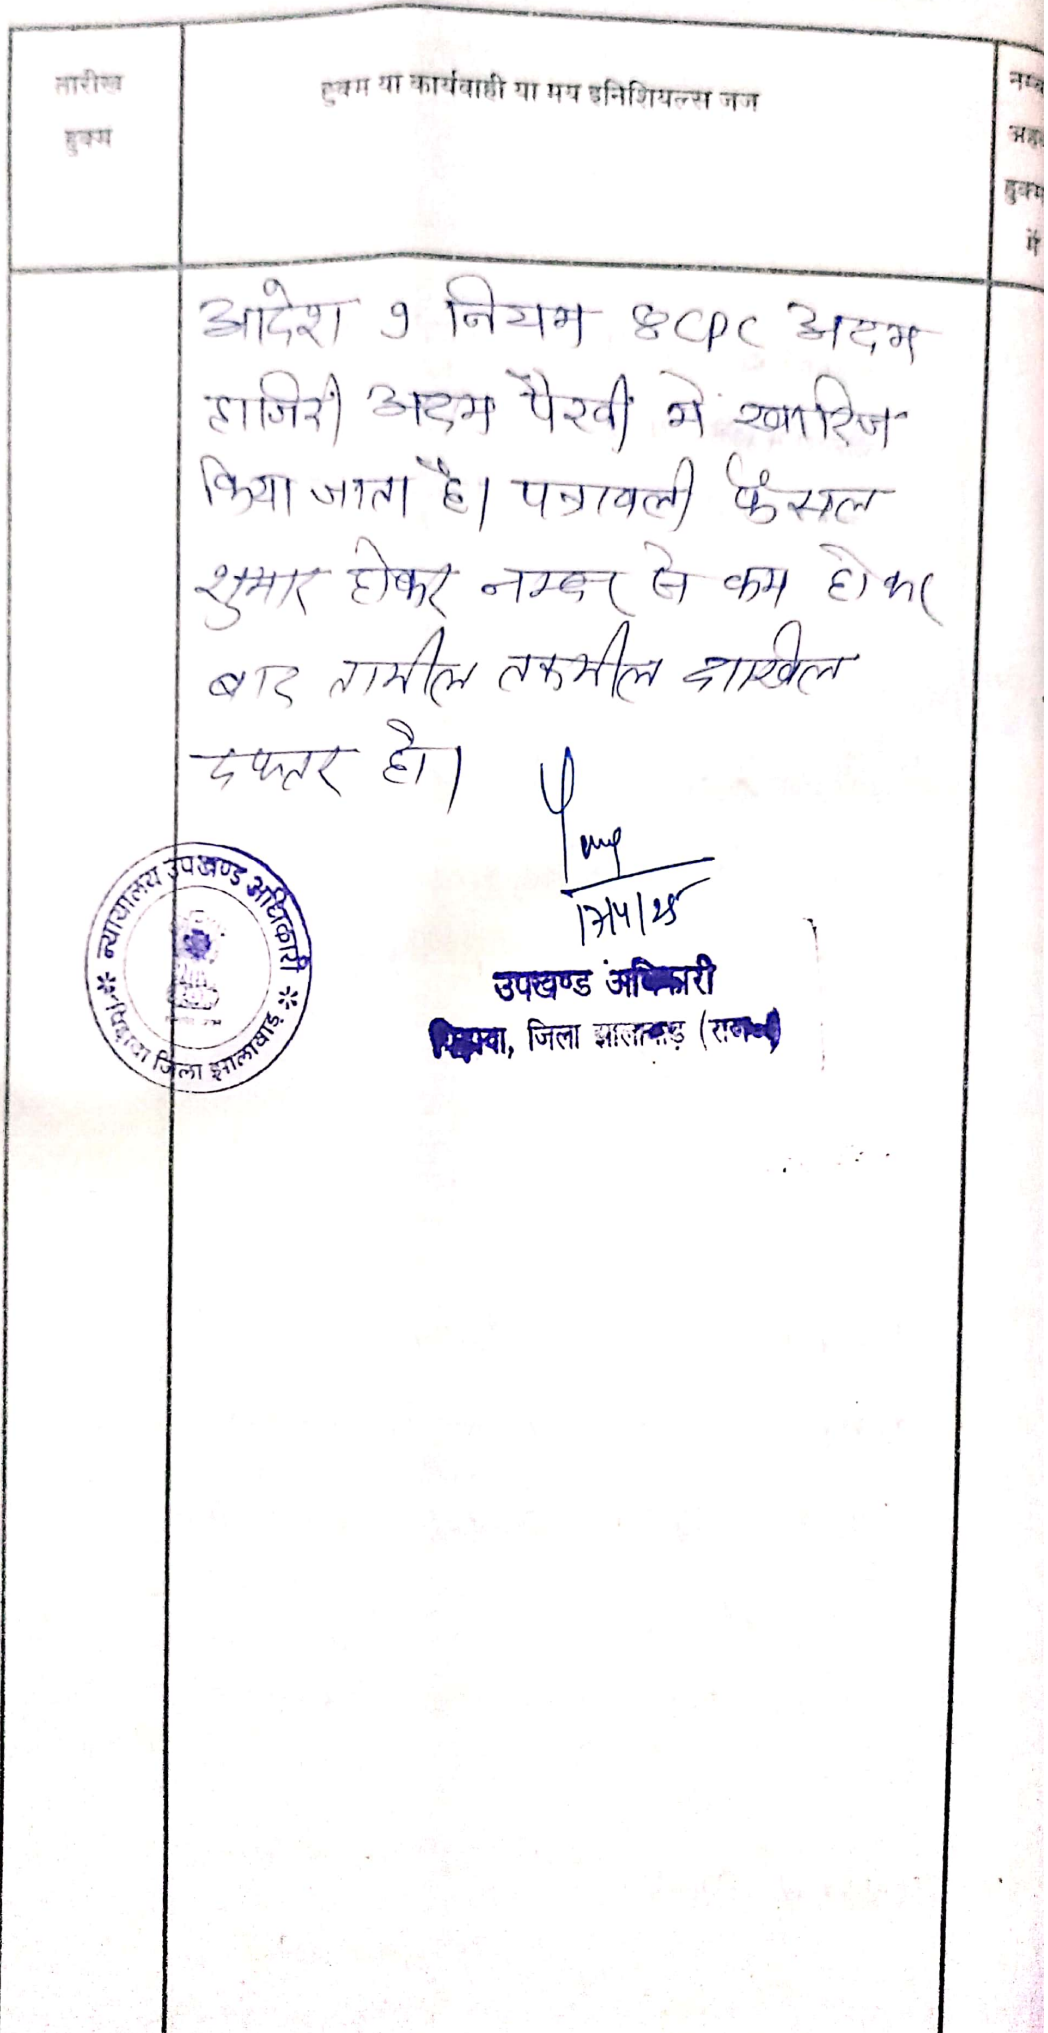 तारीख
हुक्म
हुक्म या कार्यवाही या मय इनिशियल्स जज
नम्ब
अहक
हुक्म
में
आदेश 9 नियम 8 CPC अदम
हाजिरी अदम पैरवी मे खारिज
किया जाता है। पत्रावली फैसल
शुमार होकर नम्बर से कम होकर
बाद तामील तकमील दाखिल
दफ्तर हो।
17/4/25
उपखण्ड अधिकारी
पिड़ावा, जिला झालावाड़ (राज०)
न्यायालय उपखण्ड अधिकारी
पिड़ावा जिला झालावाड़